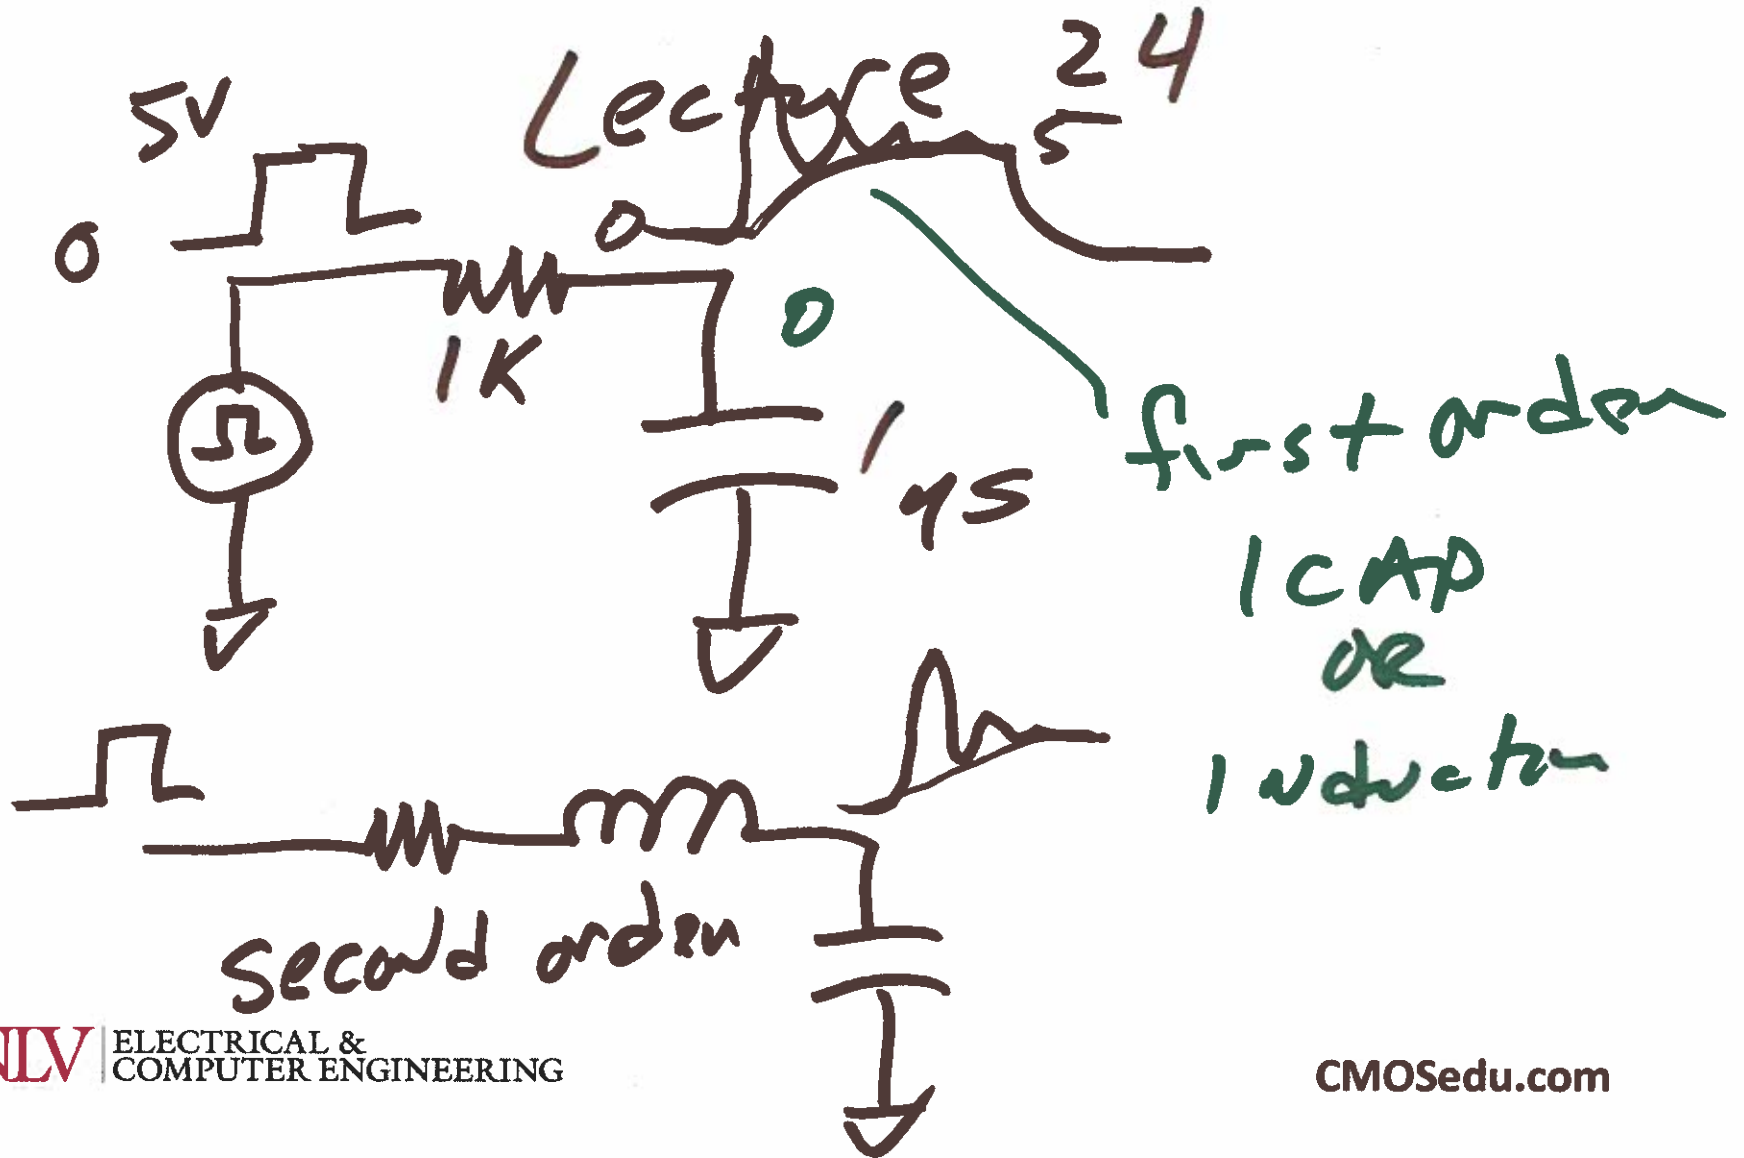 Lecture 24
5V
0
0
5
1K
0
1
first order
1 CAP
OR
1 Nductor
second order
ELECTRICAL &
COMPUTER ENGINEERING
CMOSedu.com